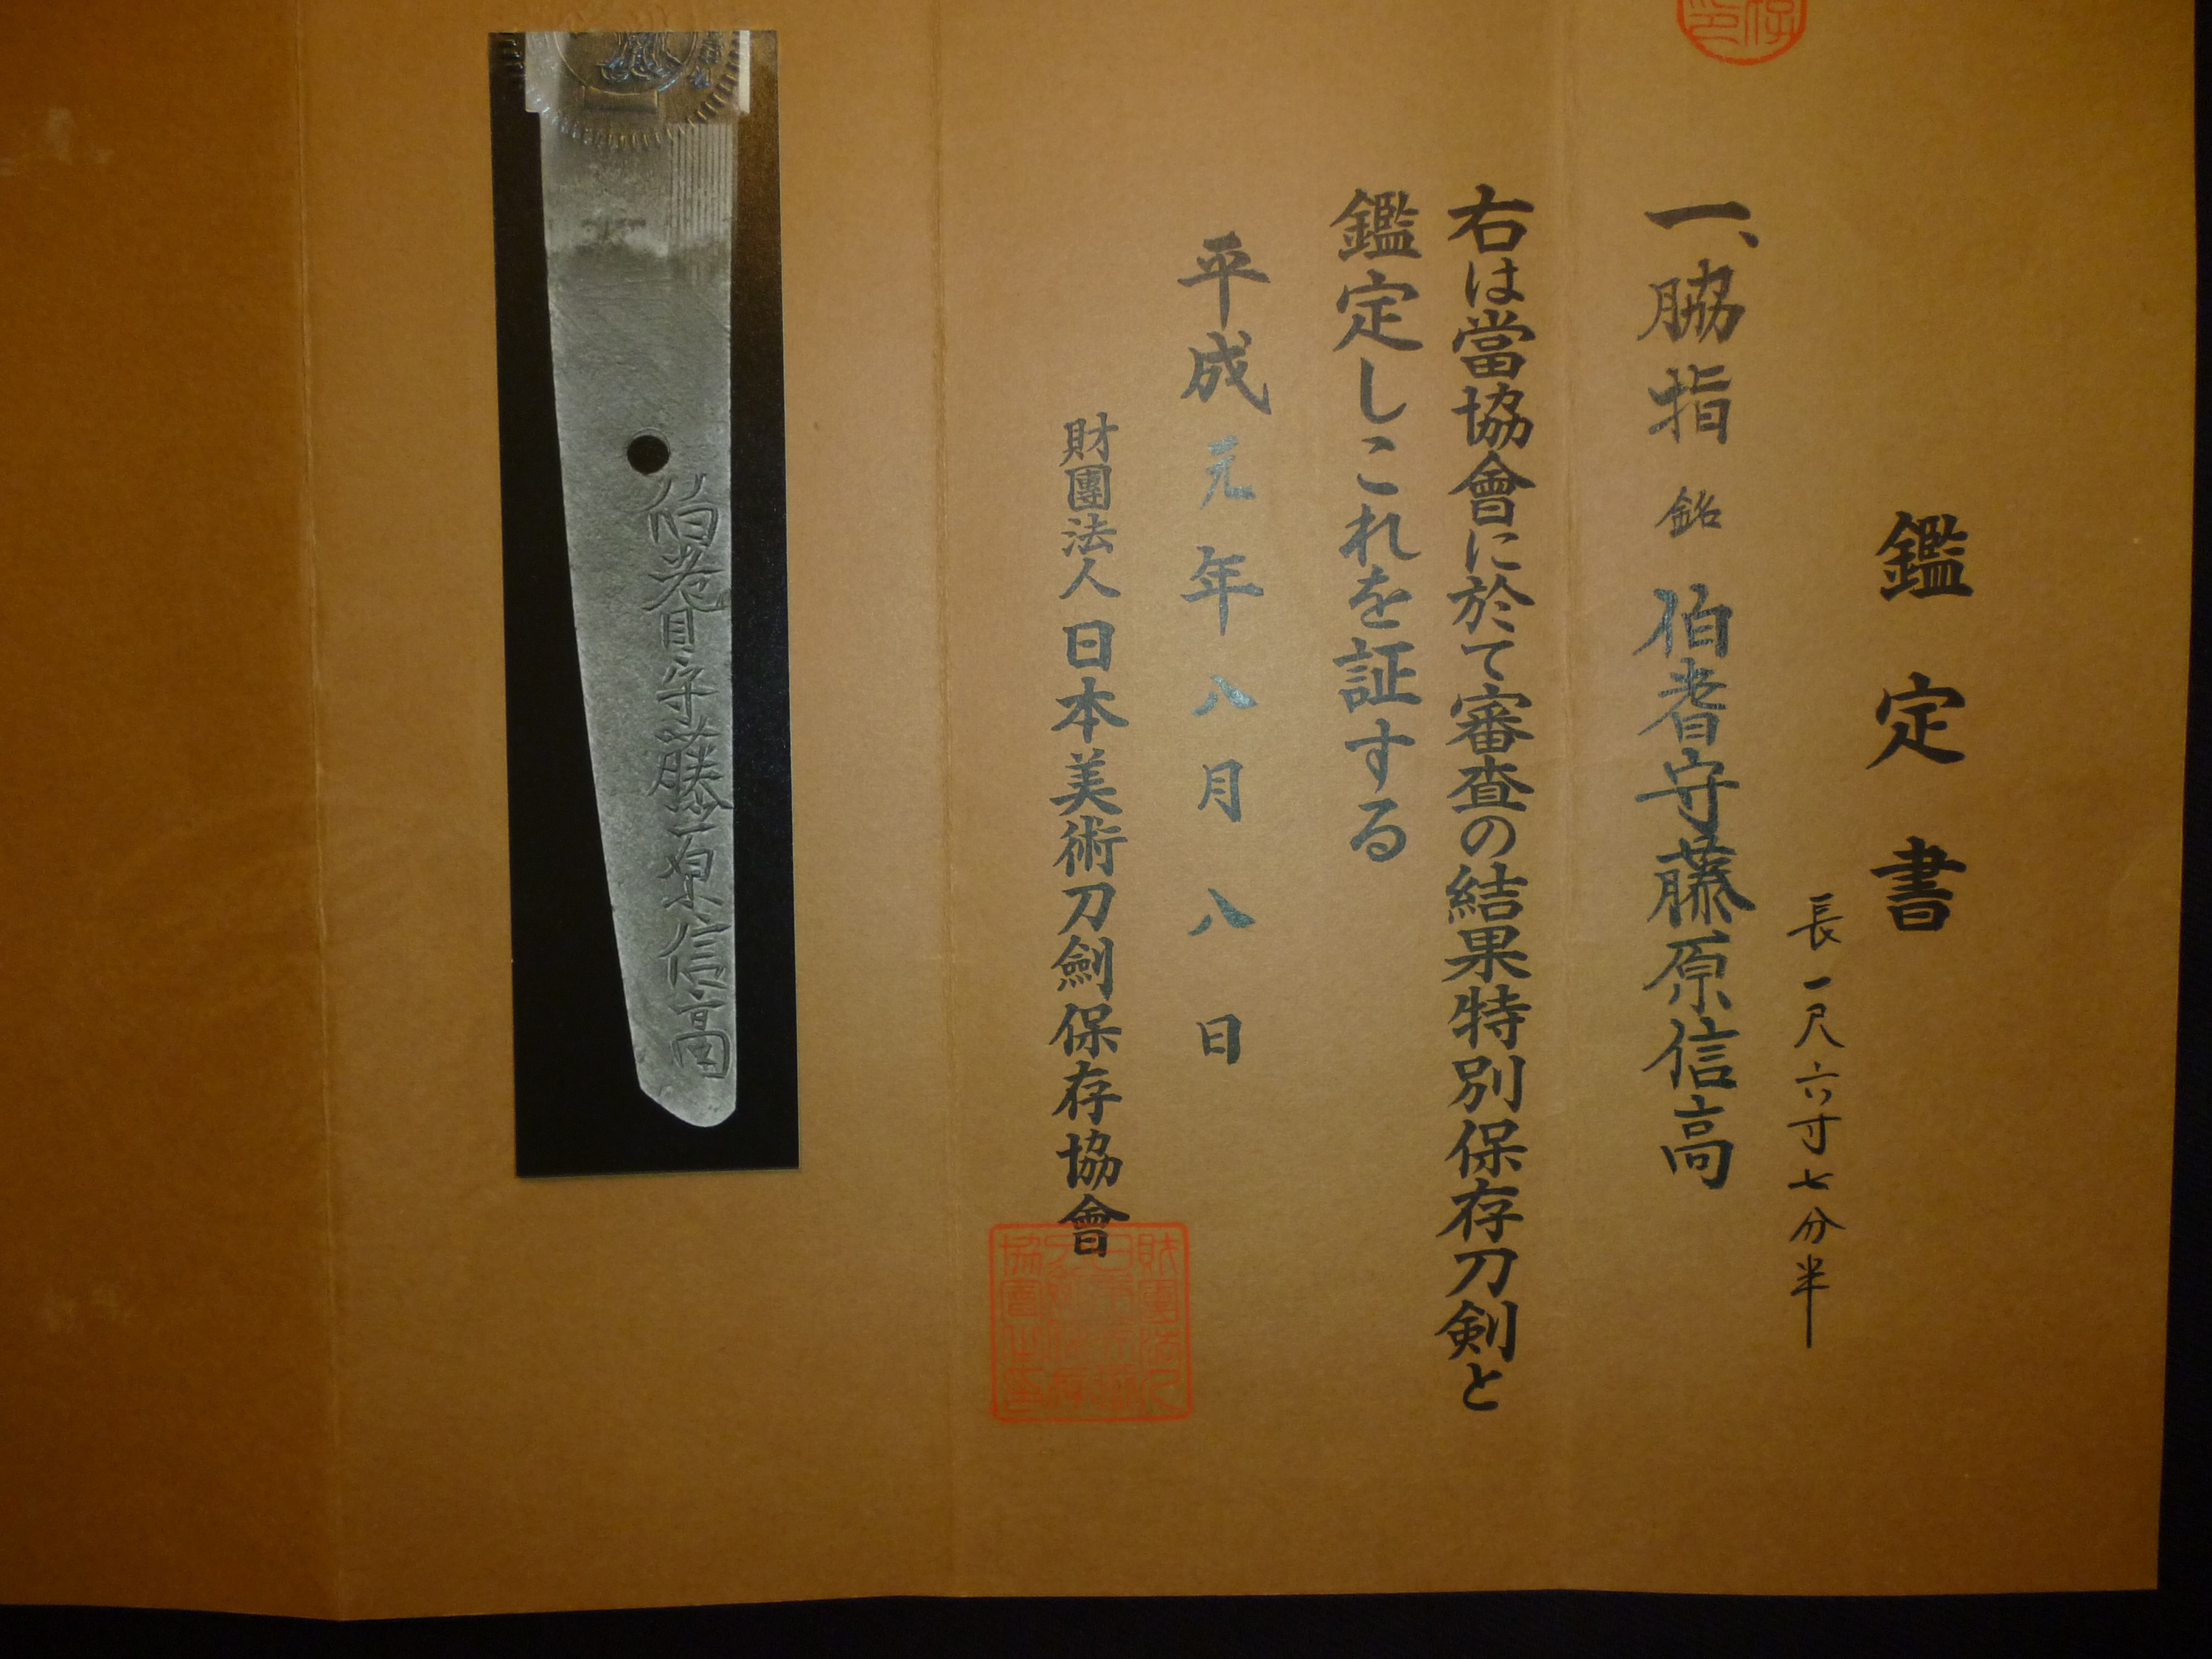 鑑定書
長一尺六寸七分半
一、脇指 銘 伯耆守藤原信高
右は當協會に於て審査の結果特別保存刀剣と
鑑定しこれを証する
平成元年八月八日
財團法人日本美術刀劍保存協會
伯耆守藤原信高